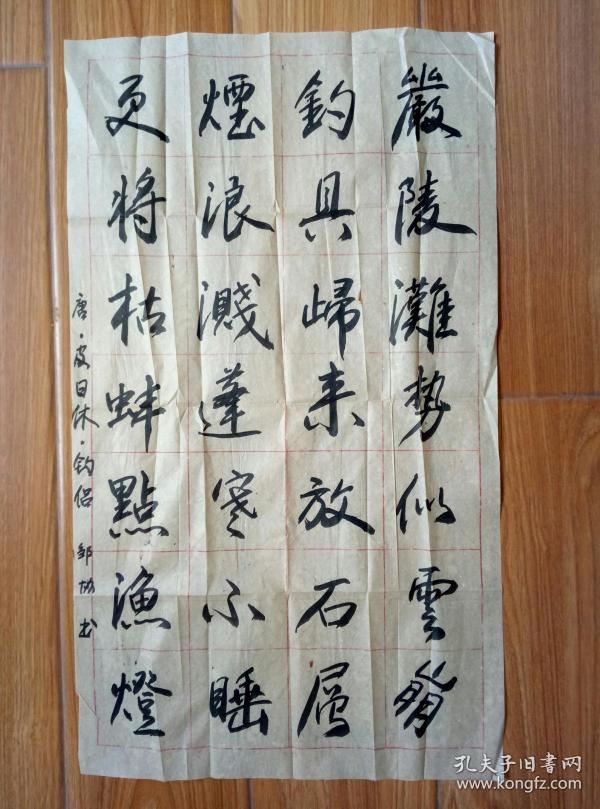 嚴陵灘势似雲崩
釣具歸来放石層
煙浪濺蓬寒不睡
更将枯蚌點漁燈
唐·皮日休·釣侣 邹协书
孔夫子旧书网
www.kongfz.com